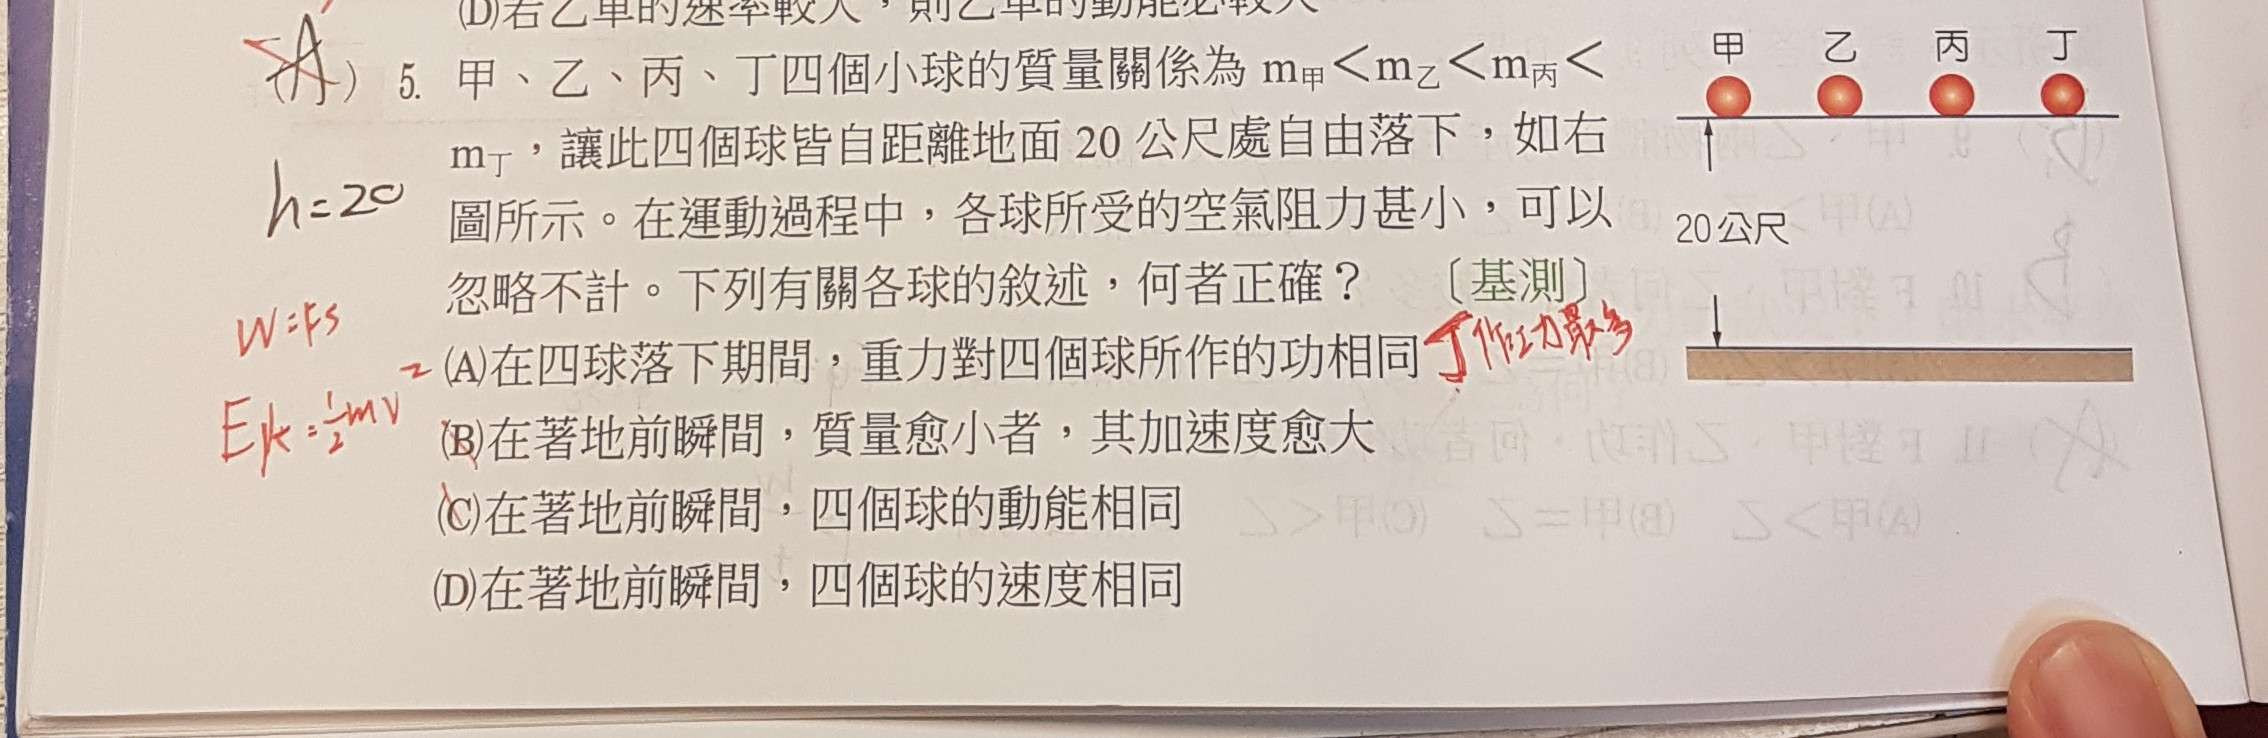 (D)若乙車的速率較大，則乙車的動能必較大
(A) 5. 甲、乙、丙、丁四個小球的質量關係為 m甲＜m乙＜m丙＜
m丁，讓此四個球皆自距離地面 20 公尺處自由落下，如右
圖所示。在運動過程中，各球所受的空氣阻力甚小，可以
忽略不計。下列有關各球的敘述，何者正確？ 〔基測〕
(A)在四球落下期間，重力對四個球所作的功相同
(B)在著地前瞬間，質量愈小者，其加速度愈大
(C)在著地前瞬間，四個球的動能相同
(D)在著地前瞬間，四個球的速度相同
h=20
W=FS
Ek=½mV²
丁作功最多
甲 乙 丙 丁
20公尺